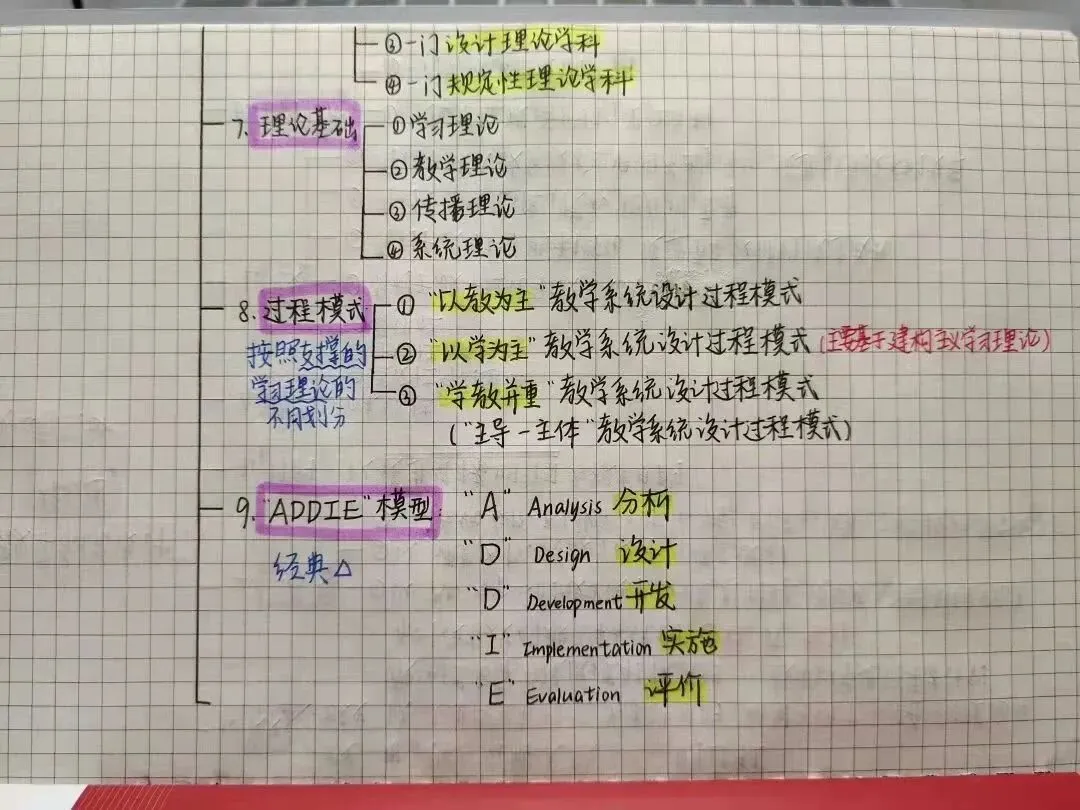 ③一门设计理论学科
④一门规定性理论学科
7. 理论基础
①学习理论
②教学理论
③传播理论
④系统理论
8. 过程模式
按照支撑的
学习理论的
不同划分
①"以教为主"教学系统设计过程模式
②"以学为主"教学系统设计过程模式(主要基于建构主义学习理论)
③"学教并重"教学系统设计过程模式
("主导-主体"教学系统设计过程模式)
9. "ADDIE"模型:
经典△
"A" Analysis 分析
"D" Design 设计
"D" Development 开发
"I" Implementation 实施
"E" Evaluation 评价